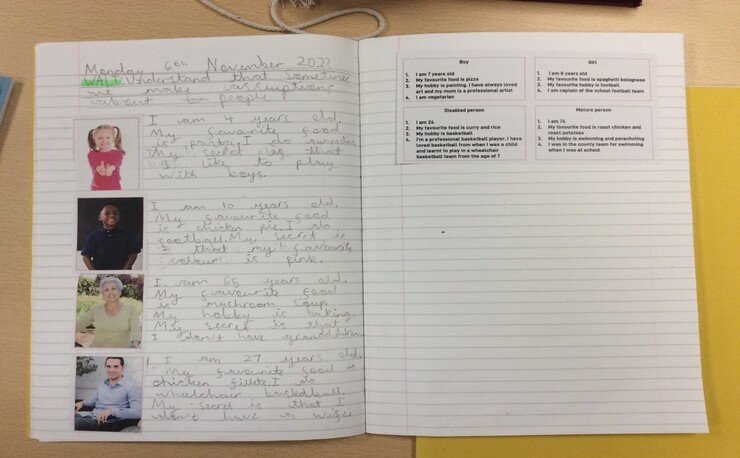 Monday 6th November 2023
WALT Understand that sometimes
we make assumptions
about people
I am 4 years old.
My favourite food
is pasta. I do gymnastics
My secret is that
I like to play
with boys.
I am 10 years old.
My favourite food
is chicken pie. I do
football. My secret is
that my favourite
colour is pink.
I am 65 years old.
My favourite food
is mushroom soup.
My hobby is baking.
My secret is that
I don't have grandchildren
I am 27 years old.
My favourite food is
chicken fillets. I do
wheelchair basketball.
My secret is that I
don't have a wife.
Boy
1. I am 7 years old
2. My favourite food is pizza
3. My hobby is painting. I have always loved
art and my mum is a professional artist
4. I am vegetarian
Girl
1. I am 8 years old
2. My favourite food is spaghetti bolognese
3. My favourite hobby is football
4. I am captain of the school football team
Disabled person
1. I am 24
2. My favourite food is curry and rice
3. My hobby is basketball
4. I'm a professional basketball player. I have
loved basketball from when I was a child
and learnt to play in a wheelchair
basketball team from the age of 7
Mature person
1. I am 76
2. My favourite food is roast chicken and
roast potatoes
3. My hobby is swimming and parachuting
4. I was in the county team for swimming
when I was at school